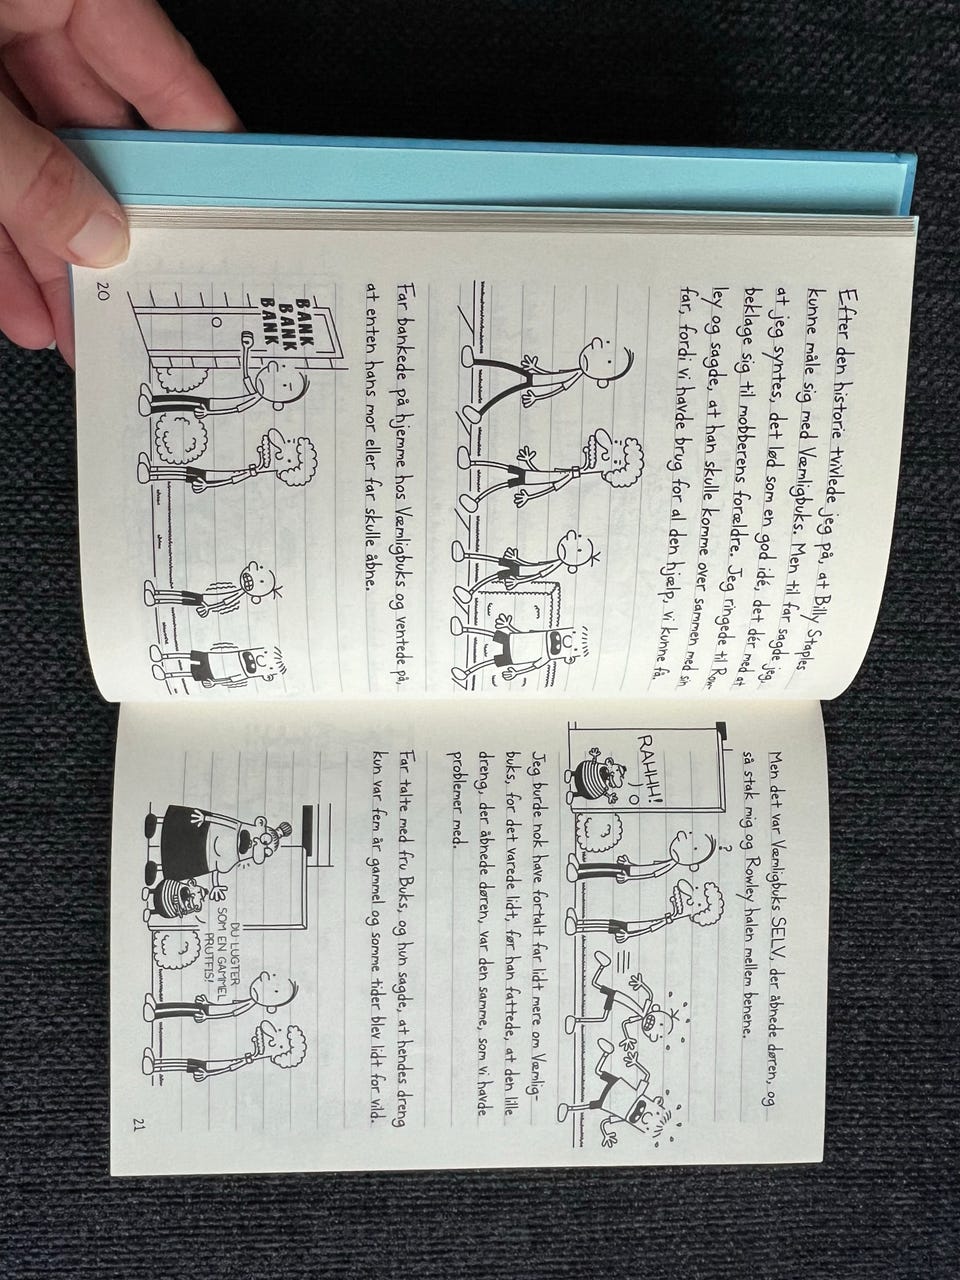 Efter den historie tvivlede jeg på, at Billy Staples
kunne måle sig med Væmligbuks. Men til far sagde jeg,
at jeg syntes, det lød som en god idé, det dér med at
beklage sig til mobberens forældre. Jeg ringede til Row-
ley og sagde, at han skulle komme over sammen med sin
far, fordi vi havde brug for al den hjælp, vi kunne få.
Far bankede på hjemme hos Væmligbuks og ventede på,
at enten hans mor eller far skulle åbne.
BANK
BANK
BANK
20
Men det var Væmligbuks SELV, der åbnede døren, og
så stak mig og Rowley halen mellem benene.
?
RAHH!
Jeg burde nok have fortalt far lidt mere om Væmlig-
buks, for det varede lidt, før han fattede, at den lille
dreng, der åbnede døren, var den samme, som vi havde
problemer med.
Far talte med fru Buks, og hun sagde, at hendes dreng
kun var fem år gammel og somme tider blev lidt for vild.
DU LUGTER
SOM EN GAMMEL
PRUTFIS!
21